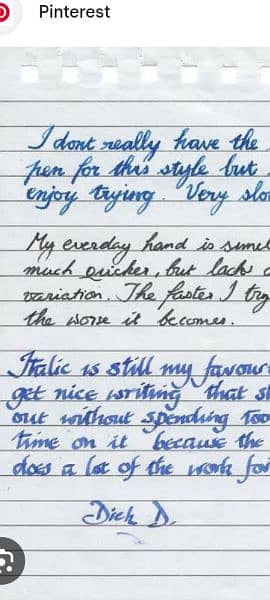 Pinterest
I dont really have the
pen for this style but
enjoy trying. Very slo
My everday hand is simil
much quicker, but lacks
variation. The faster I try
the worse it becomes.
Italic is still my favour
get nice writing that s
out without spending too
time on it because the
does a lot of the work for
Dick D.